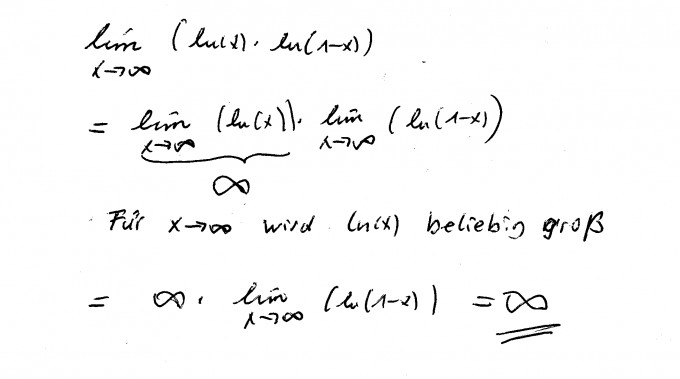 lim (ln(x) · ln(1-x))
x→∞
= lim (ln(x)) · lim (ln(1-x))
x→∞ x→∞
∞
Für x→∞ wird ln(x) beliebig groß
= ∞ · lim (ln(1-x)) = ∞
x→∞